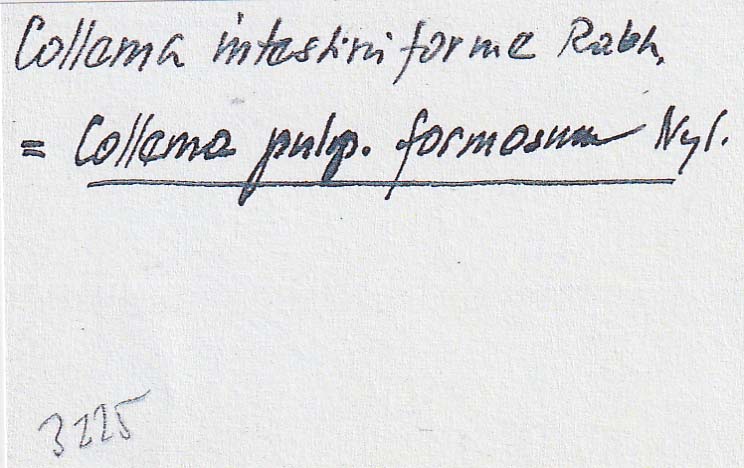 Collema intestiniforme Rabh.
= Collema pulp. formosum Nyl.
3225